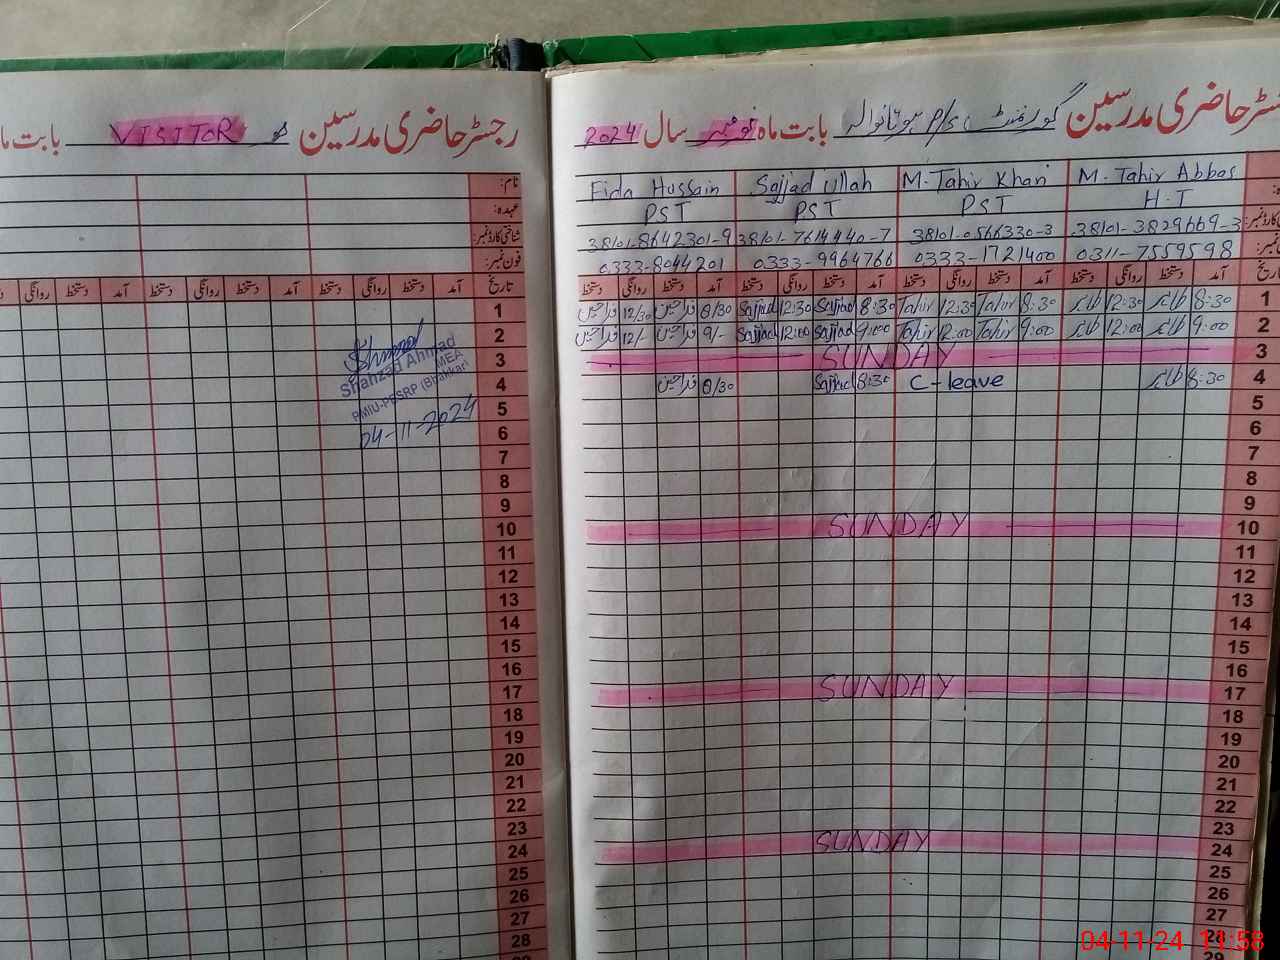 رجسٹر حاضری مدرسین گورنمنٹ P/S بوتانوالہ بابت ماہ نومبر سال 2024
M. Tahir Abbas M. Tahir Khan Sajjad Ullah Fida Hussain
H.T PST PST PST
38101-3829669-3 38101-0566330-3 38101-7614440-7 38101-8642301-9
0311-7559598 0333-1721400 0333-9964766 0333-8044201
تاریخ آمد دستخط روانگی دستخط آمد دستخط روانگی دستخط آمد دستخط روانگی دستخط آمد دستخط روانگی دستخط
1 8:30 طاہر 12:30 طاہر 8:30 Tahir 12:30 Tahir 8:30 Sajjad 12:30 Sajjad 8/30 فداحسین 12/30 فداحسین
2 9:00 طاہر 12:00 طاہر 9:00 Tahir 12:00 Tahir 9:00 Sajjad 12:00 Sajjad 9/- فداحسین 12/- فداحسین
3 SUNDAY
4 8:30 طاہر C-leave 8:30 Sajjad 8/30 فداحسین
5
6
7
8
9
10 SUNDAY
11
12
13
14
15
16
17 SUNDAY
18
19
20
21
22
23
24 SUNDAY
25
26
27
28
29
رجسٹر حاضری مدرسین VISITOR بابت ما
نام:
عہدہ:
شناختی کارڈ نمبر:
فون نمبر:
تاریخ آمد دستخط روانگی دستخط آمد دستخط روانگی دستخط آمد دستخط روانگی
1
2
3
4
5
6
7
8
9
10
11
12
13
14
15
16
17
18
19
20
21
22
23
24
25
26
27
28
Shahzad Ahmad
MEA
PMIU-PESRP (Bhakkar)
04-11-2024
04-11-24 11:58